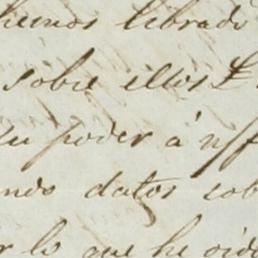 hemos librado
sobre ellos £
su poder á n/f
ndo datos sob
r lo que he oido